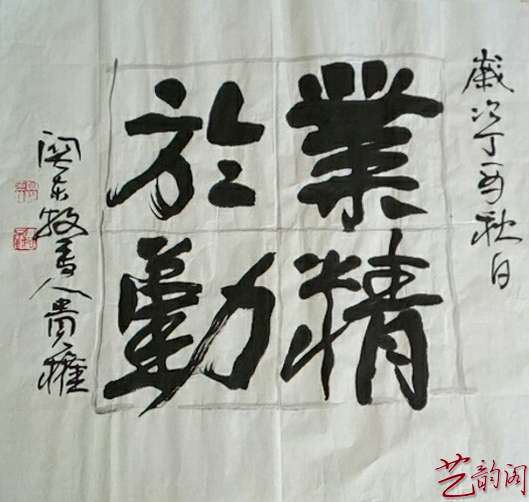 歲次丁酉秋日
業精
於勤
關東牧季人貴權
艺韵阁